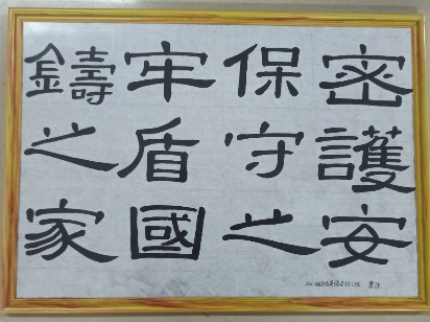 鑄牢保密
之盾守護
家國之安